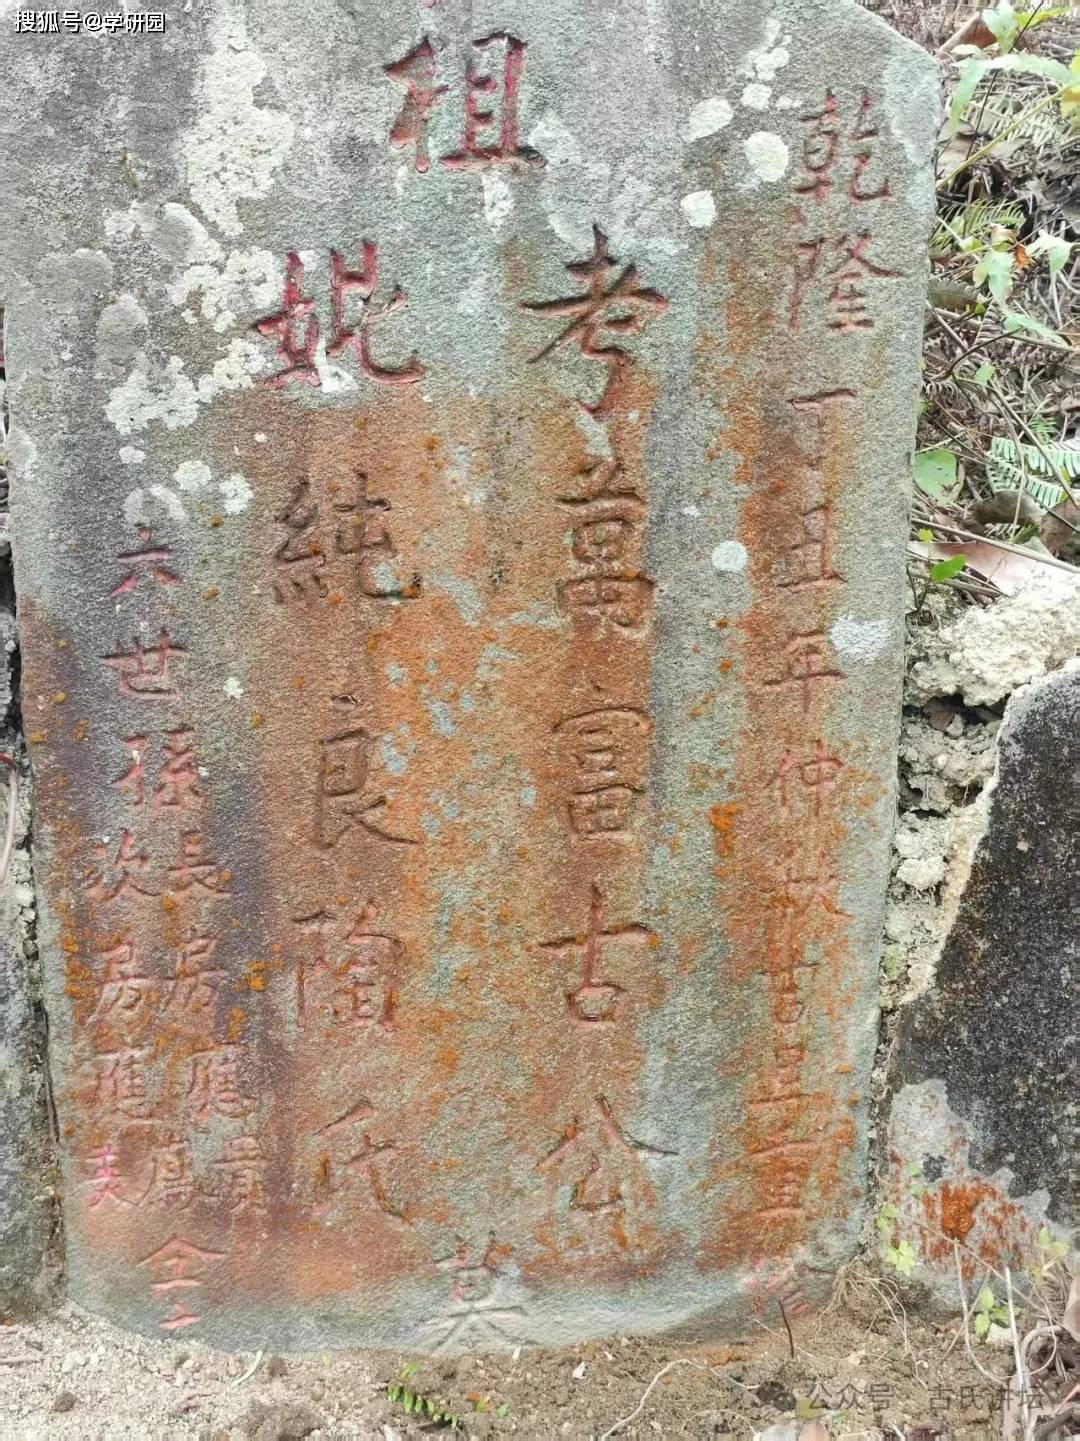 搜狐号@学研园
乾隆丁丑年仲秋吉旦重修
祖
考萬富古公
妣純良陶氏
墓
六世孫
長房應貴
次房應
仝立
公众号 古氏讲坛